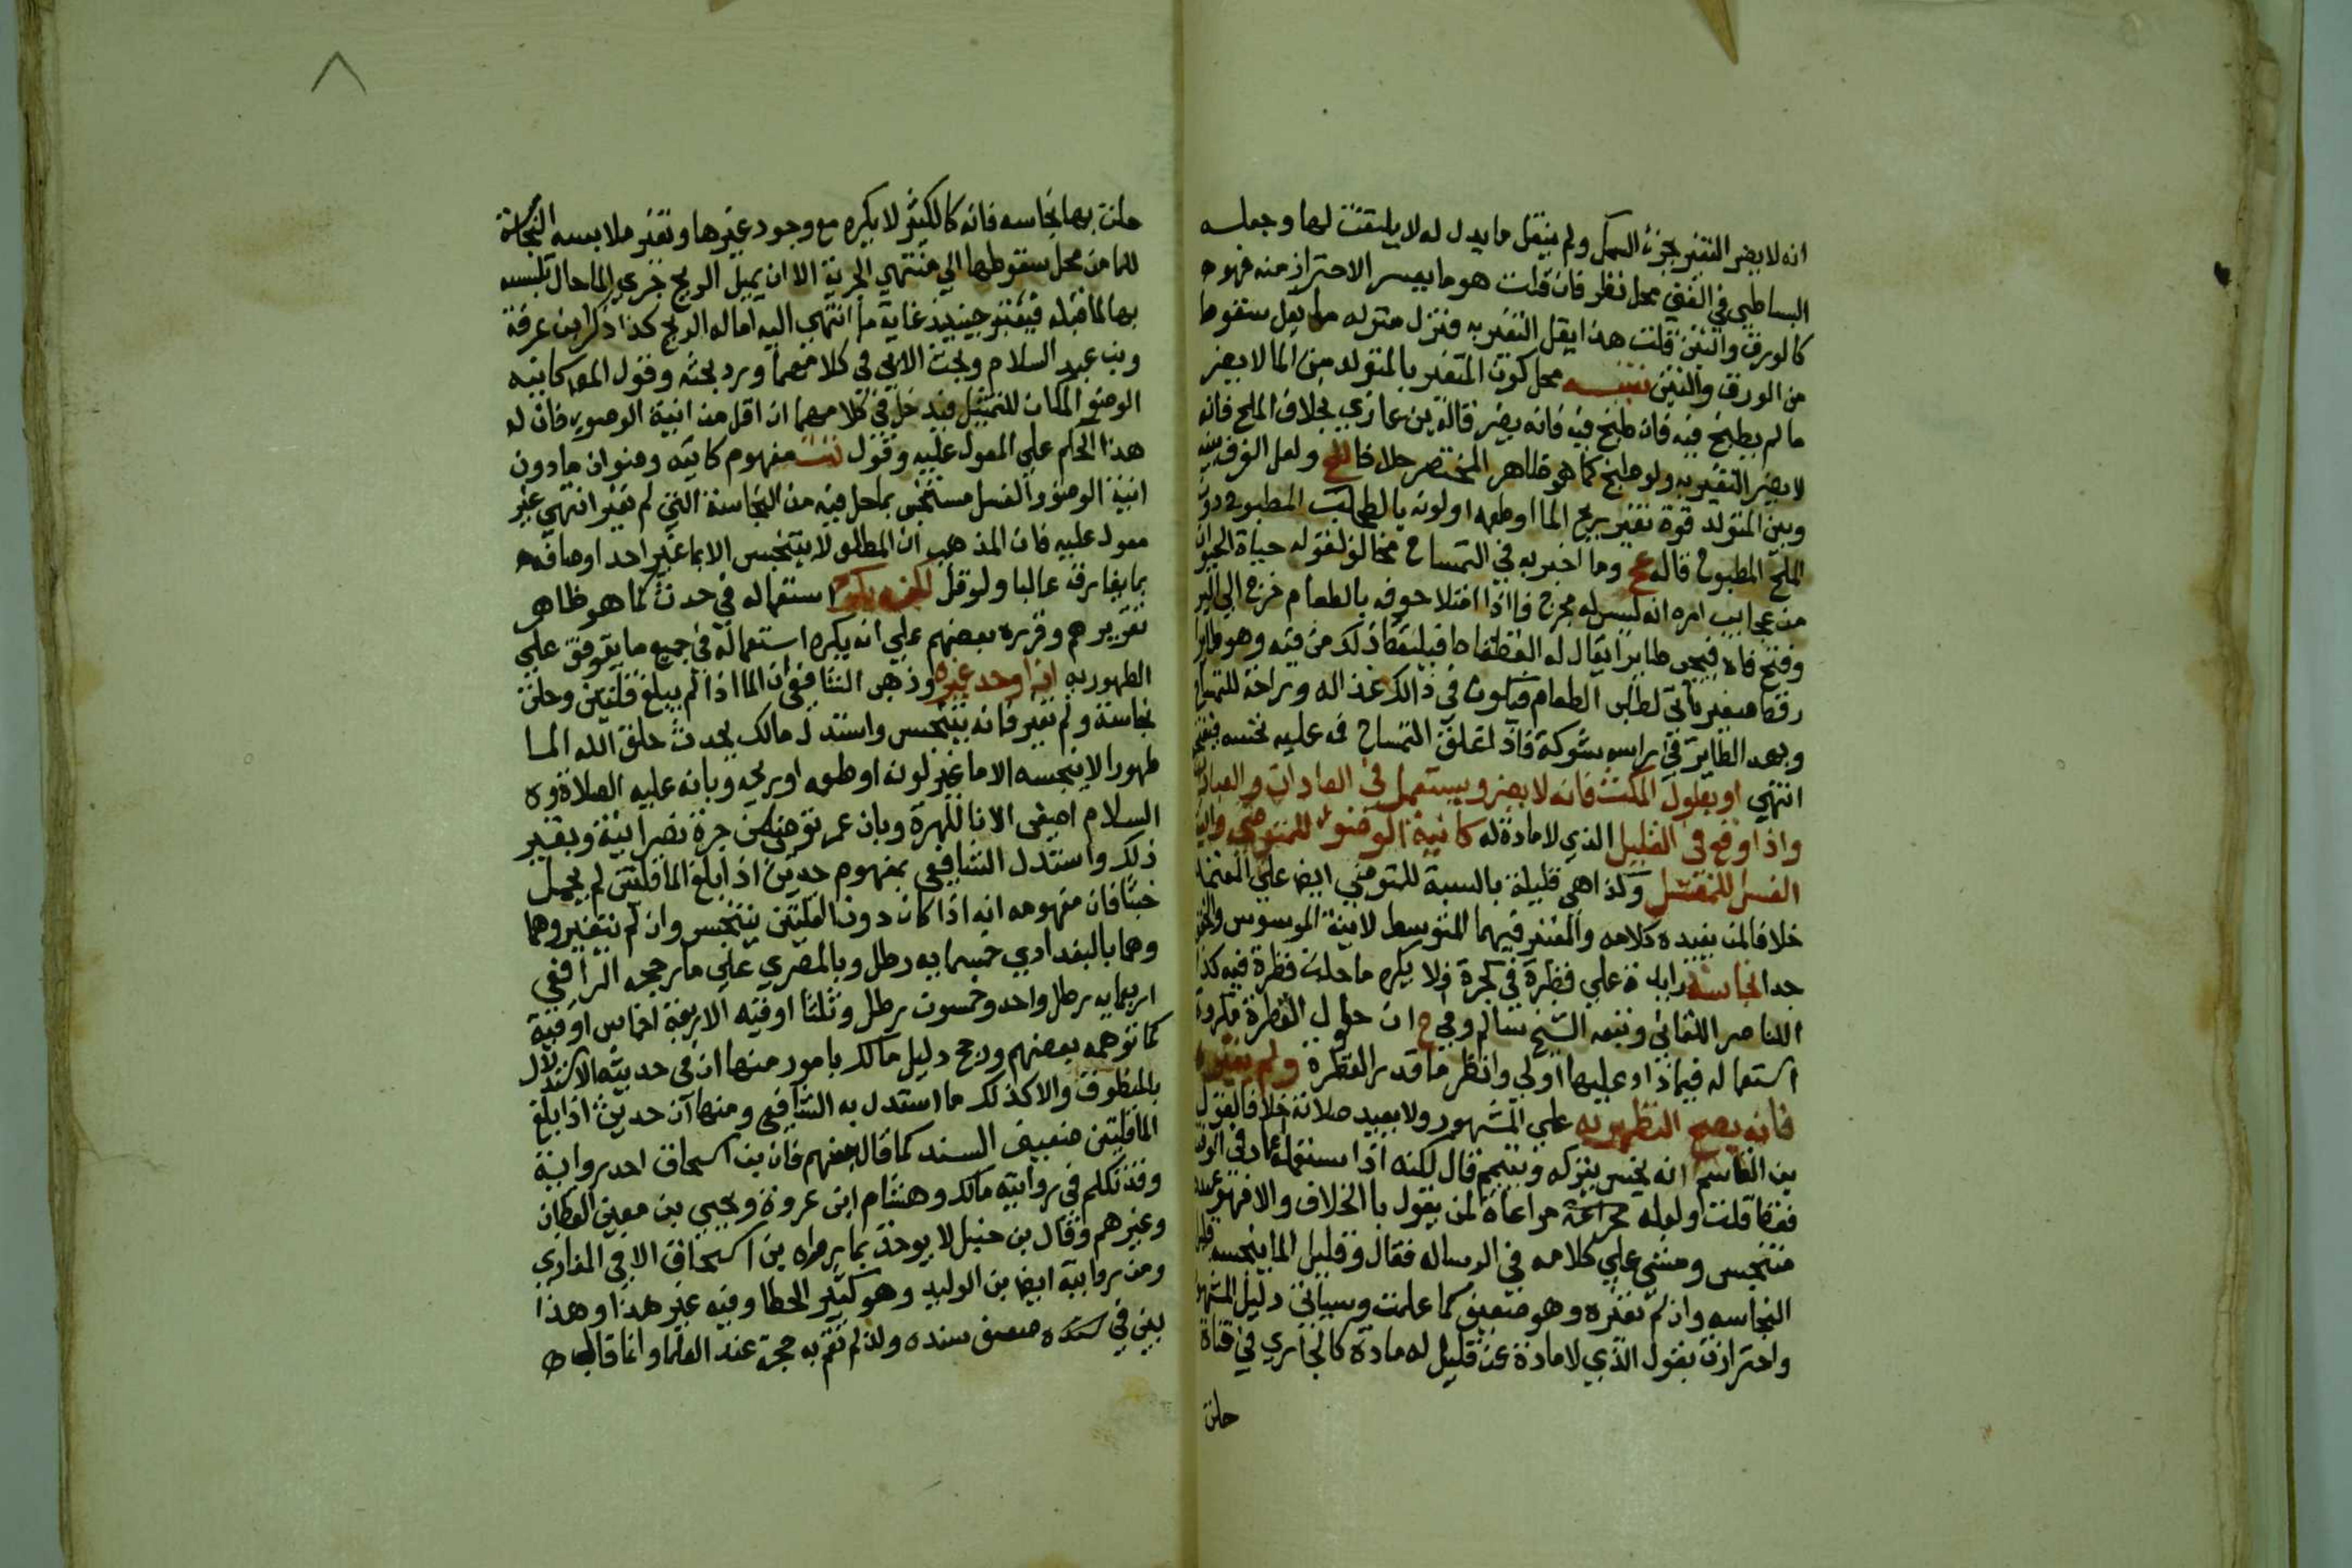 انه لا يضر التغير بجزء السمك ولم ينقل ما يدل له لا يلتفت لها وجعله
البساطي في الفقي محل نظر فان قلت هو ما يعسر الاحتراز منه فهو ه
كالورق والتبن قلت هذا يقل التغير به فنزل منزله ما يقل سقوطا
من الورق والتبن تنبيه محل كون المتغير بالمتولد من الما لا يضر
ما لم يطبخ فيه فان طبخ فيه فانه يضر قاله بن غازي بخلاف الملح فانه
لا يضر التغير به ولو طبخ كما هو ظاهر المختصر خلافا ولعل الفرق بينه
وبين المتولد قوة تغير ريح الما او طعمه او لونه بالطحلب المطبوخ دون
الملح المطبوخ قاله عج وما اخبر به في التمساح مخالف لقوله حياة الحيوان
من عجايب امره انه ليس له مخرج فااذا امتلا جوفه بالطعام خرج الي البر
وفتح فاه فيجي طاير يقال له القطقاط فيلتقط ذلك من فيه وهو طاير
رقط صغير ياتي لطلب الطعام فيكون في ذالك غذا له وراحة للتمساح
وبهد الطاير في راسه شوكة فاذا تغلق التمساح فه عليه نخسه فيفتحها
انتهي او بطول المكث فانه لا يضر ويستعمل في العادات والعبادات
واذا وقع في القليل الذي لا مادة له كانية الوضوء للمتوضي وانية
الغسل للمغتسل وكذا هي قليلة بالنسبة للمتوضي ايضا علي المعتمد
خلافا لمن يفيده كلامه والمعتبر فيهما المتوسط لا بينة الموسوس
جدا نجاسة زايدة علي قطرة في كجرة فلا يكره ما حلت قطرة فيه كذا
الناصر اللقاني وتبعه الشيخ سالم وفي ح ان حلول القطرة مكروه
استعماله فيما زاد عليها اولي وانظر ما قدر القطرة ولم تغيره
فانه يصح التطهير به علي المشهور ولا يعيد صلاته خلافا لقول
بن القاسم انه نجس يتركه ويتيمم قال لكنه اذا استعمله اعاد في الوقت
فقط قلت ولعله مراعاة لمن يقول باالخلاف والا فهو عنده
متنجس ومشي علي كلامه في الرساله فقال وقليل الما ينجسه قليل
النجاسه وان لم تغيره وهو ضعيف كما علمت وسياتي دليل المشهور
واحترازنا بقول الذي لا مادة عن قليل له مادة كالجاري في قناة
حلت
حلت بها نجاسه فانه كالكثير لا يكره مع وجود غيرها وتغير ملابسه النجاسة
للما من محل سقوطها الي منتهي الجرية الا ان يميل الريح جري الما حال تلبسه
بها لما قبله فيعتبر حينيذ غاية ما انتهي اليه اماله الريح كذا ذكر ابن عرفة
وبن عبد السلام وبحث الابي في كلامهما ورد بحثه وقول المص كانيه
الوضوء الكاف للتمثيل فيدخل في كلامهما ان اقل من انية الوضوء فان له
هذا الحكم علي المعول عليه وقول تت مفهوم كانيه وضوان ما دون
انية الوضوء والغسل متنجس بما حل فيه من النجاسة التي لم تغير انتهي غير
معول عليه فان المذهب ان المطلق لا يتنجس الا بما غير احد اوصافه
بما يفارقه غالبا ولو قل لكنه يكره استعماله في حدث كما هو ظاهر
تقريرهم وقرره بعضهم علي انه يكره استعماله في جميع ما يتوقف علي
الطهوريه ان وجد غيره وذهب الشافعي ان الما اذا لم يبلغ قلتين وحلت
نجاسة ولم تغير فانه يتنجس واستدل مالك بحديث خلق الله الما
طهورا لا ينجسه الا ما غير لونه او طعمه او ريحه وبانه عليه الصلاة و ه
السلام اصغي الانا للهرة وبان عمر توضي من جرة نصرانية وبغير
ذلك واستدل الشافعي بمفهوم حديث اذا بلغ الما قلتين لم يحمل
خبثا فان مفهومه انه اذا كان دون القلتين يتنجس وان لم يتغير وهما
وهما بالبغدادي خمسمايه رطل وبالمصري علي ما رجحه الرافعي
اربعمايه رطل واحد وخمسون رطل وثلثا اوقيه الاربعة اخماس اوقية
كما توهمه بعضهم ورجح دليل مالك بامور منها ان في حديثه الاستدلال
بالمنطوق والاكذلك ما استدل به الشافعي ومنها ان حديث اذا بلغ
الما قلتين ضعيف السند كما قاله بعضهم فان بن اسحاق احد رواية
وقد تكلم في روايته مالك وهشام ابن عروة ويحيي بن معين القطان
وغيرهم وقال بن حنبل لا يوخذ بما يرواه بن اسحاق الا في المغازي
ومن روايته ايضا بن الوليد وهو كثير الخطا وفيه غير هذا وهذا
بين في ضعف سنده ولذ لم تقم به حجة عند العلما وانما قال